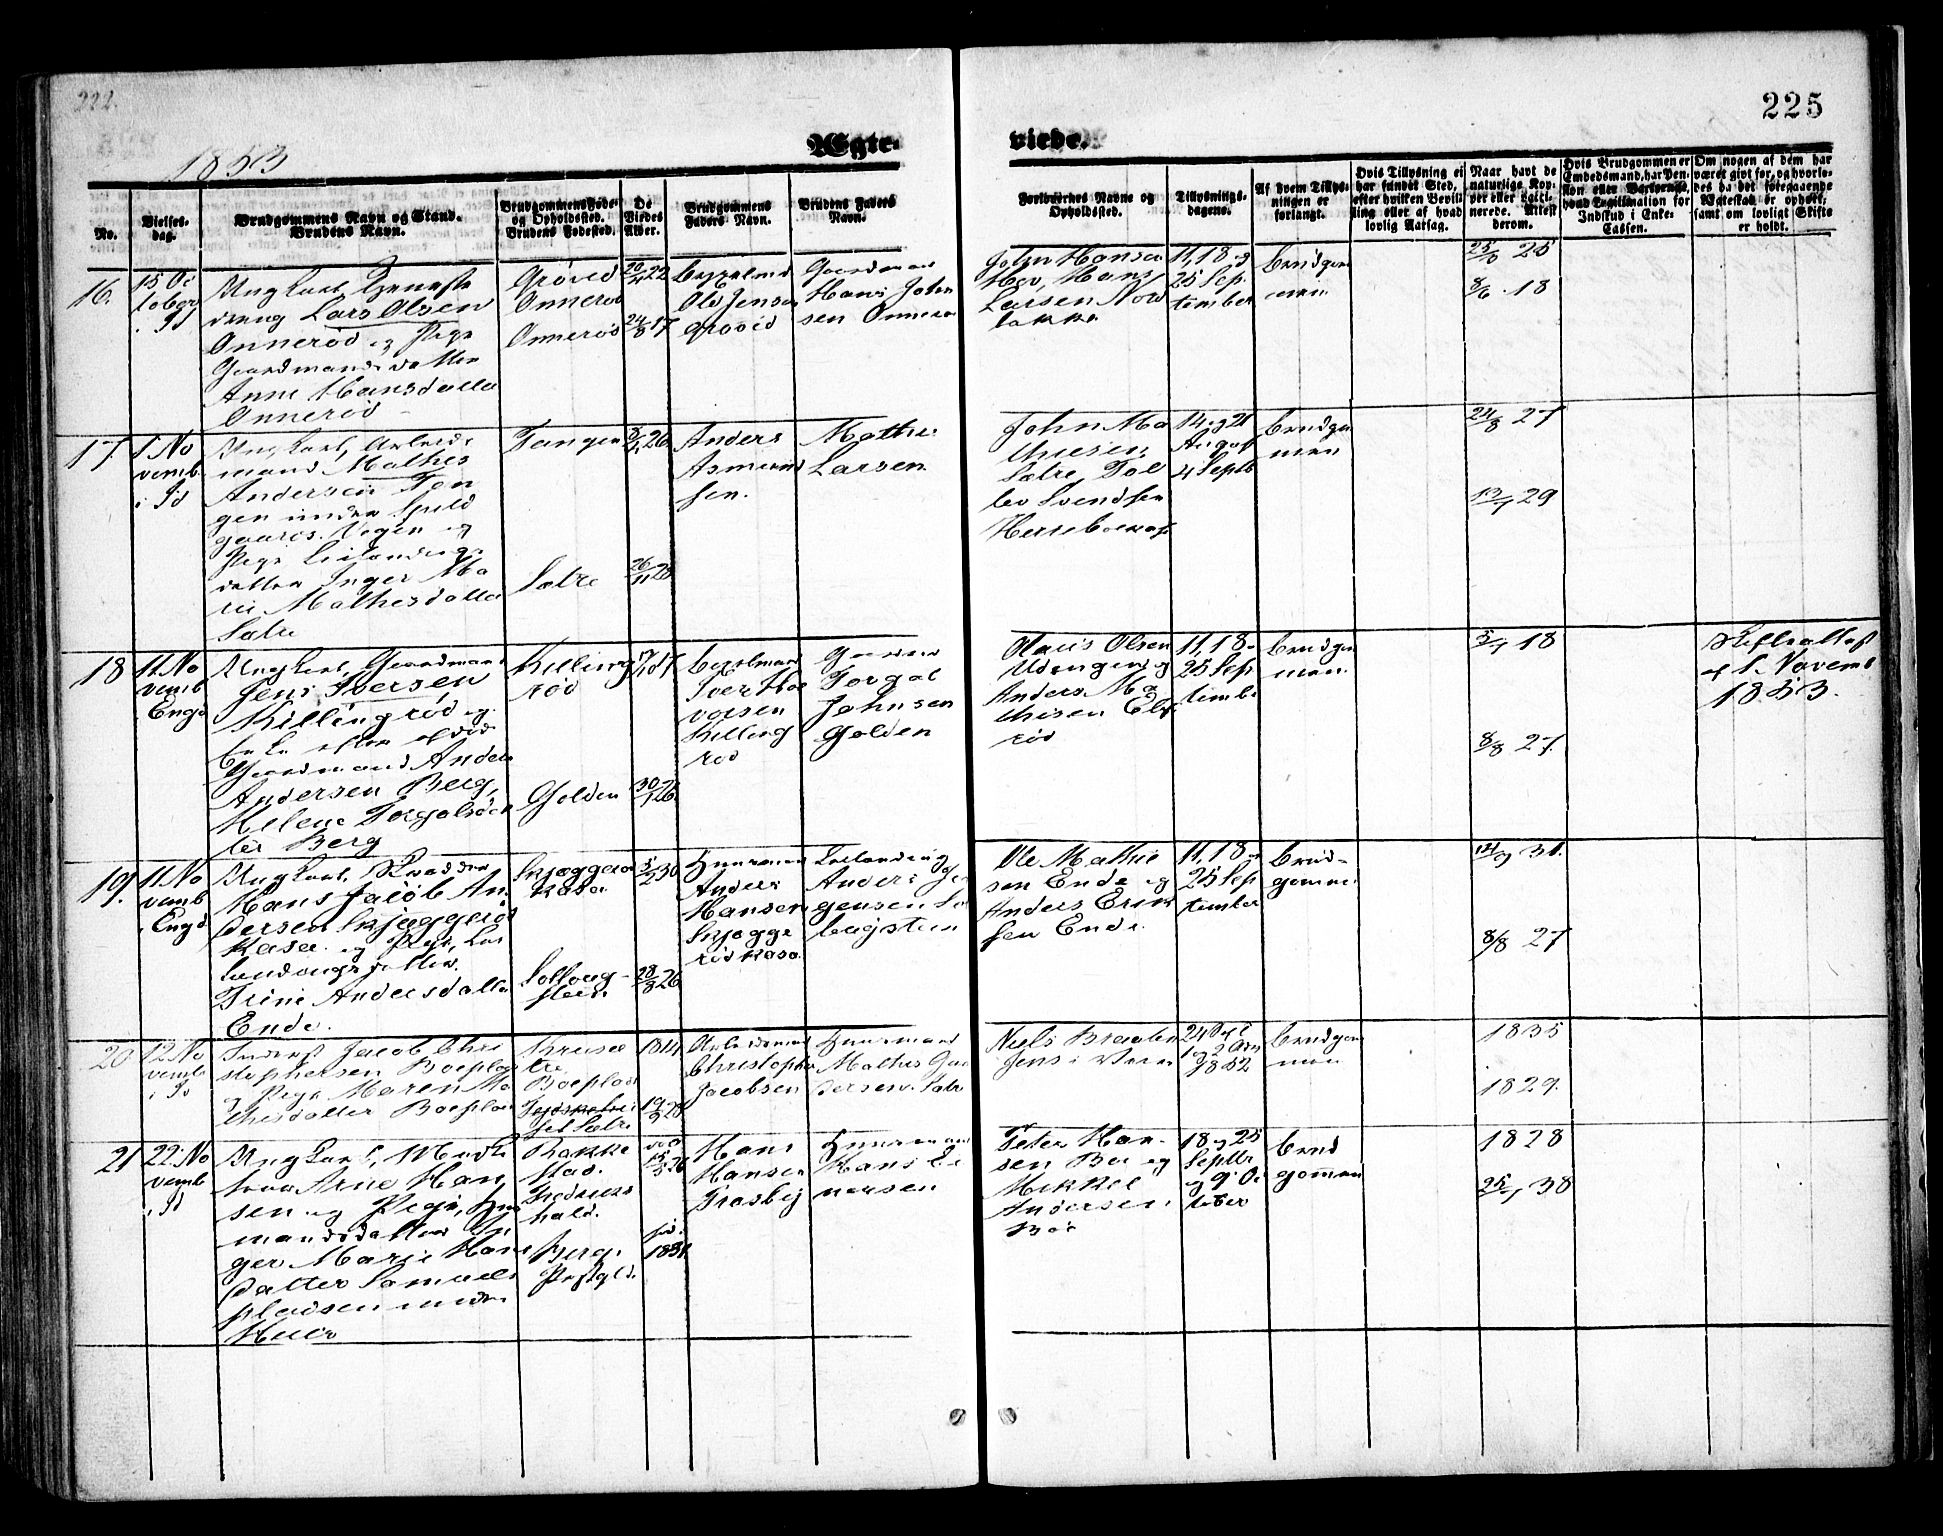 222.
225
1853
Ægte-
viede.
No.
Vielses-
dag.
Brudgommens Navn og Stand.
Brudens Navn.
Brudgommens Føde-
og Opholdssted.
Brudens Fødested.
De
Viedes
Alder.
Brudgommens
Faders Navn.
Brudens Faders
Navn.
Forlovernes Navne og
Opholdssted.
Tillysnings-
dagene.
Af hvem Tillys-
ningen er
forlangt.
Hvis Tillysning ei
har fundet Sted,
efter hvilken Bevil-
ling eller af hvad
lovlig Aarsag.
Naar havt de
naturlige Kop-
per eller vacci-
nerede. Attest
derom.
Hvis Brudgommen er
Embedsmand, har Pen-
sion eller
hvad Legitimation for
Indskud i Enke-
Cassen.
Om nogen af dem har
været givt før, og hvorle-
des da det foregaaende
Ægteskab er ophørt,
samt om lovligt Skifte
er holdt.
16.
15 Oc
tober
i Id
Ungkarl,
dreng Lars Olsen
Onnerød og Pige
Gaardmandsdatter
Anne Hansdatter
Onnerød
Grøved
Onnerød
Onnerød
22
24/8 17
Ole Jensen
Grøved
Gaardmand
Hans John
sen Onnerød
John Hansen
Hans
Larsen Nord
løkke
11, 18 og
25 Sep
tember
Brudgom
men
25
8/6 18
17
1 No
vemb
i Id
Ungkarl, Arbeids
mand Mathis
Andersen Tan
gen under
gaards Vegen og
Pige Leilændings
datter Inger Ma
rie Mathisdatter
Sætre
Tangen
Sætre
26
26/11 28
Anders
Asmund
sen.
Mathis
Larsen
John Ma
thiesen
Sætre, Tol
lev Svendsen
14 og 21
August
4 Septb
Brudgom
men
24/8 27
29
18
11 No
vemb
i Engd
Ungkarl, Gaardmand
Jens Iversen
Killingrød og
Enke efter afdøde
Gaardmand Anders
Andersen Berg,
Helene Torgalsdat
ter Berg
Killing
rød
Golden
17
30/1 26
Iver Hal
vorsen
Killing
rød
Torgal
Johnsen
Golden
Olaus Olsen
Udengen og
Anders Ma
thisen
rød
11, 18 og
25 Sep
tembr
Brudgom
men
18
8/8 27.
Skifteattest
af 1. Novemb
1853.
19.
11 No
vemb
i Engd
Ungkarl, Skrædder
Hans Jacob An
dersen Skjæggerød
kasa og Pige, Lei
lændingsdatter
Trine Andersdatter
Ende.
Skjæggerød
kasa
Solboug-
steen
5/2 30
28/8 26
Huusmand
Anders
Hansen
Skjægge
rødkasa
Leilænding
Anders Jør
gensen Sol
bugsteen
Ole Mathie
sen Ende og
Anders Erik
sen Ende
11, 18 og
25 Sep
tember
Brud-
gommen
31.
8/8 27
20
12 No
vemb
i Id
Inderst Jacob Chri
stophersen Boeplads
og Pige Maren Ma
thisdatter Boeplads
Boeplads
Sætre
1814
19/9 28
Arbeidsmand
Christopher
Jacobsen
Huusmand
Mathis Gun
dersen Sætre
Niels Braaten
Jens
24
1 og 2
1852
Brudgom
men
1835
1829.
21
22 No
vemb
i Id
Ungkarl,
Arne Han
sen og Pige, Huus
mandsdatter In
ger Marie Hans
datter Samuels
pladsen under
Rakke
stad.
Fredriks
hald.
Berg
Præstgld.
26
1831.
Hans
Hansen
Grasbÿ
Huusmand
Hans Ei
narsen
Peter Han-
sen Bøe og
Mikkel
Andersen
Bøe
18 og 25
Septbr
og 9 Oc
tober
Brud
gommen
1828
25/7 38